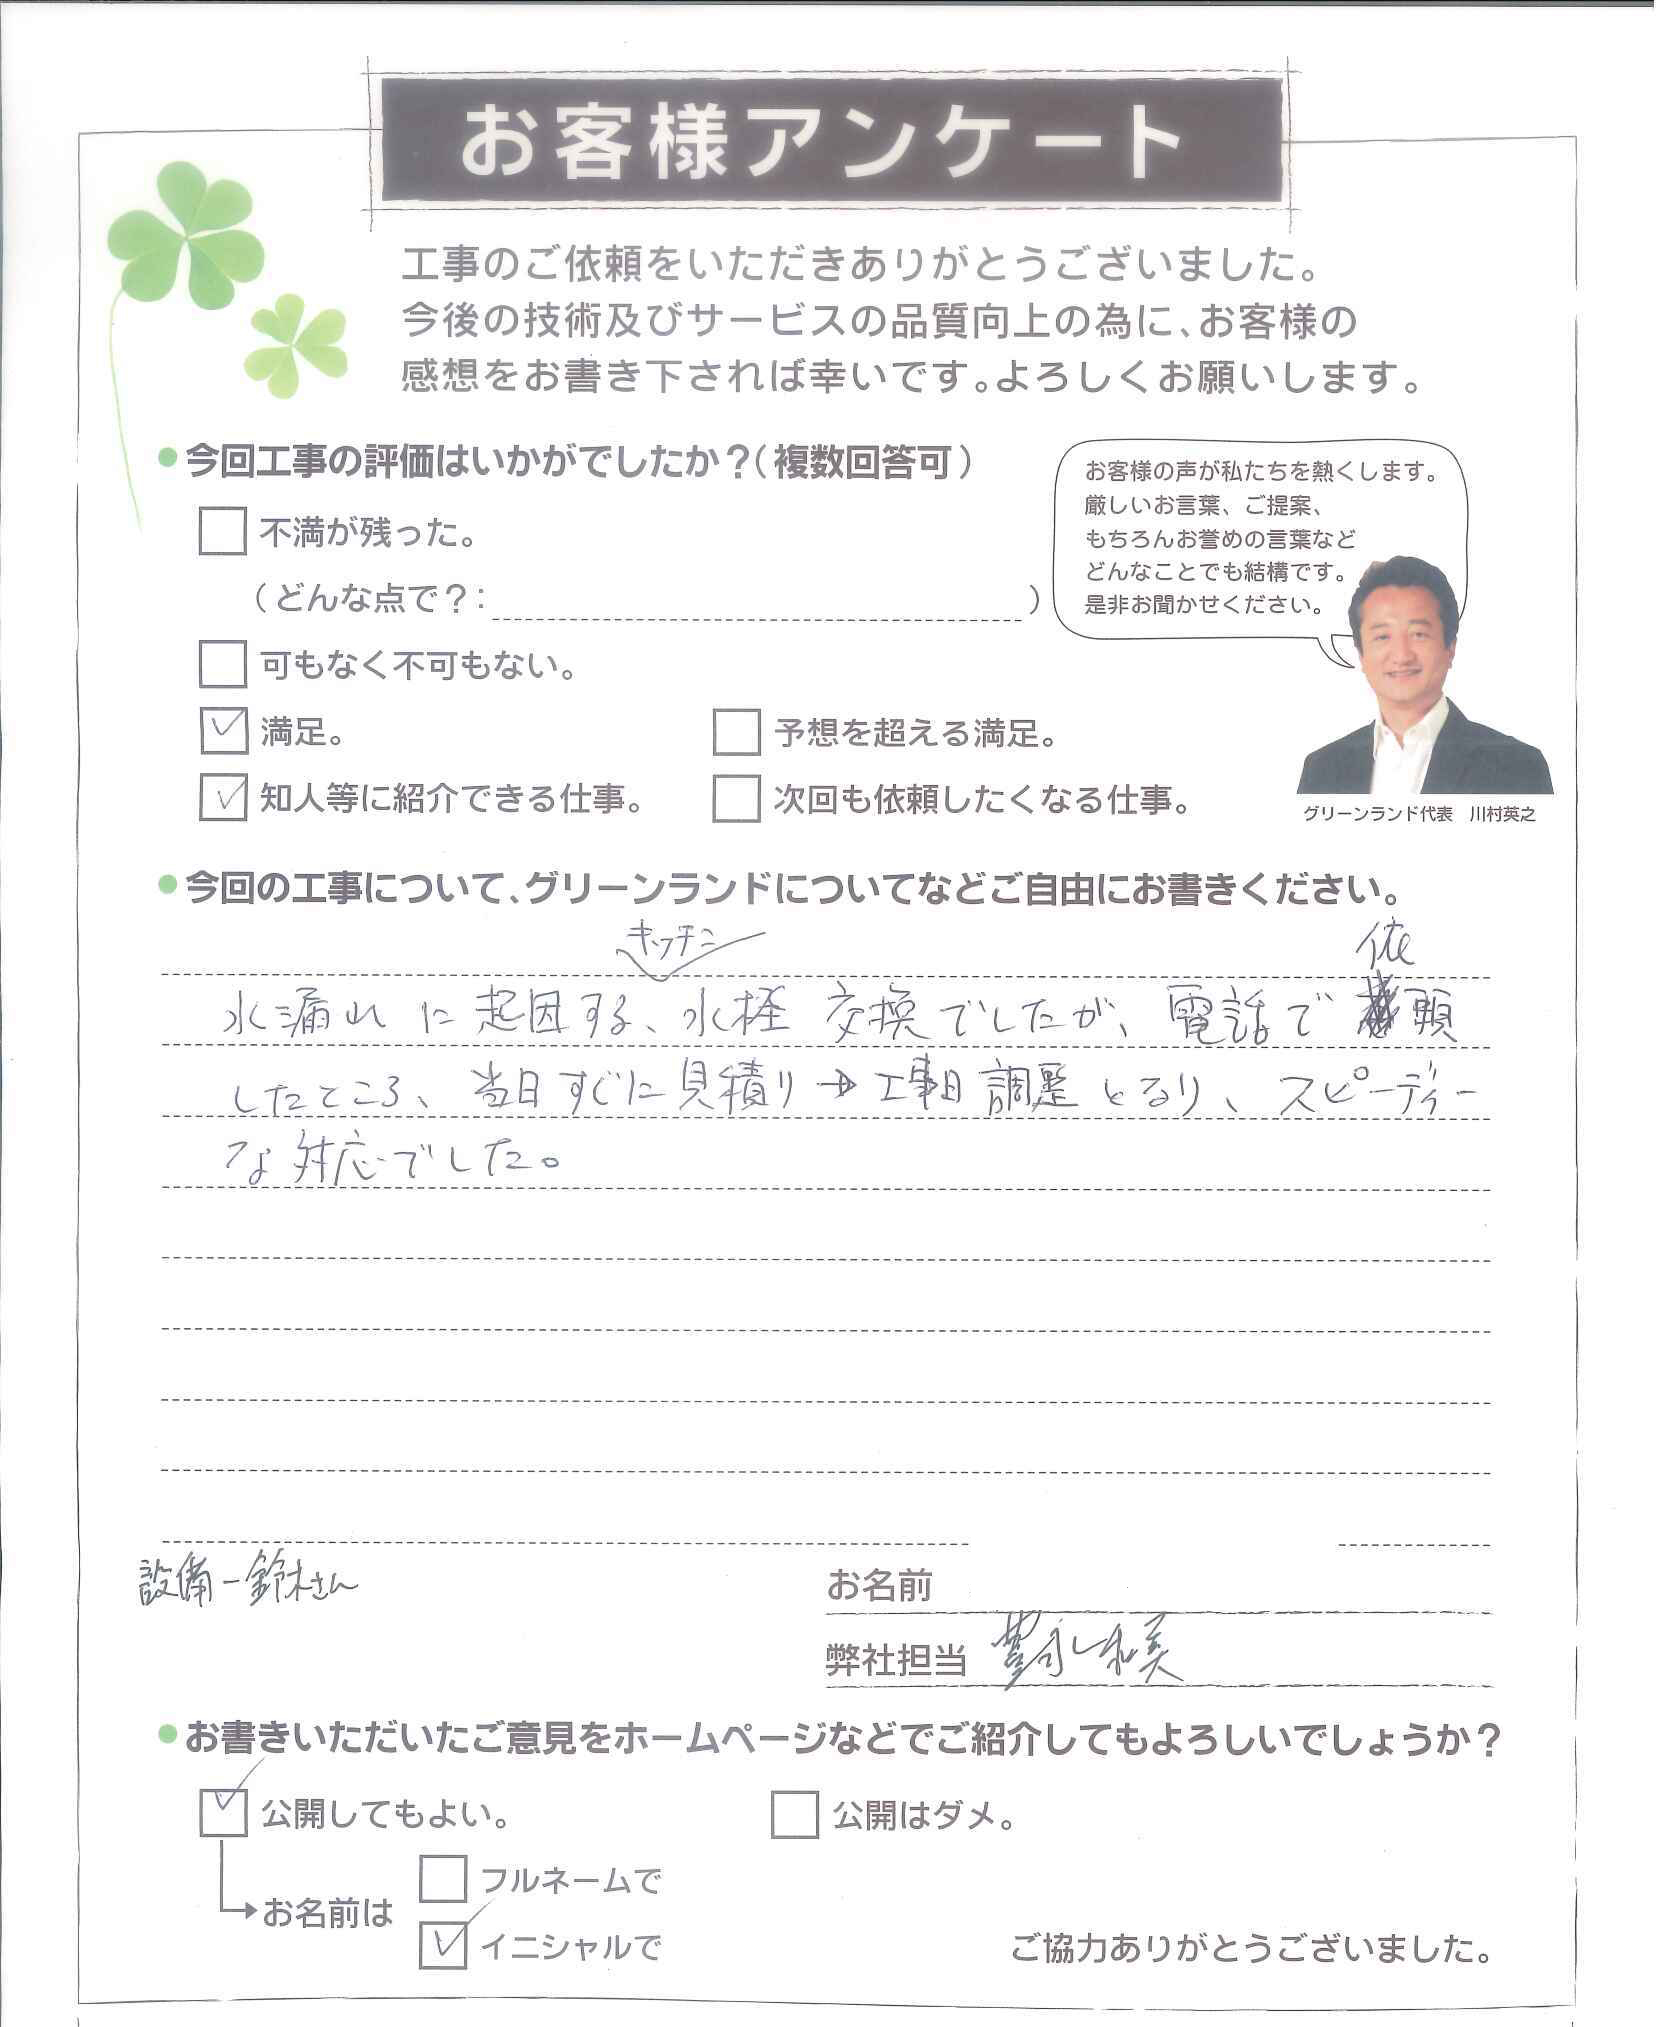 お客様アンケート
工事のご依頼をいただきありがとうございました。
今後の技術及びサービスの品質向上の為に、お客様の
感想をお書き下されば幸いです。よろしくお願いします。
今回工事の評価はいかがでしたか？（複数回答可）
不満が残った。
（どんな点で？： ）
可もなく不可もない。
満足。
予想を超える満足。
知人等に紹介できる仕事。
次回も依頼したくなる仕事。
お客様の声が私たちを熱くします。
厳しいお言葉、ご提案、
もちろんお誉めの言葉など
どんなことでも結構です。
是非お聞かせください。
グリーンランド代表　川村英之
今回の工事について、グリーンランドについてなどご自由にお書きください。
キッチン
依
水漏れに起因する、水栓交換でしたが、電話で頼
したところ、当日すぐに見積り→工事日調整となり、スピーディー
な対応でした。
設備－鈴木さん
お名前
弊社担当
お書きいただいたご意見をホームページなどでご紹介してもよろしいでしょうか？
公開してもよい。
公開はダメ。
お名前は
フルネームで
イニシャルで
ご協力ありがとうございました。